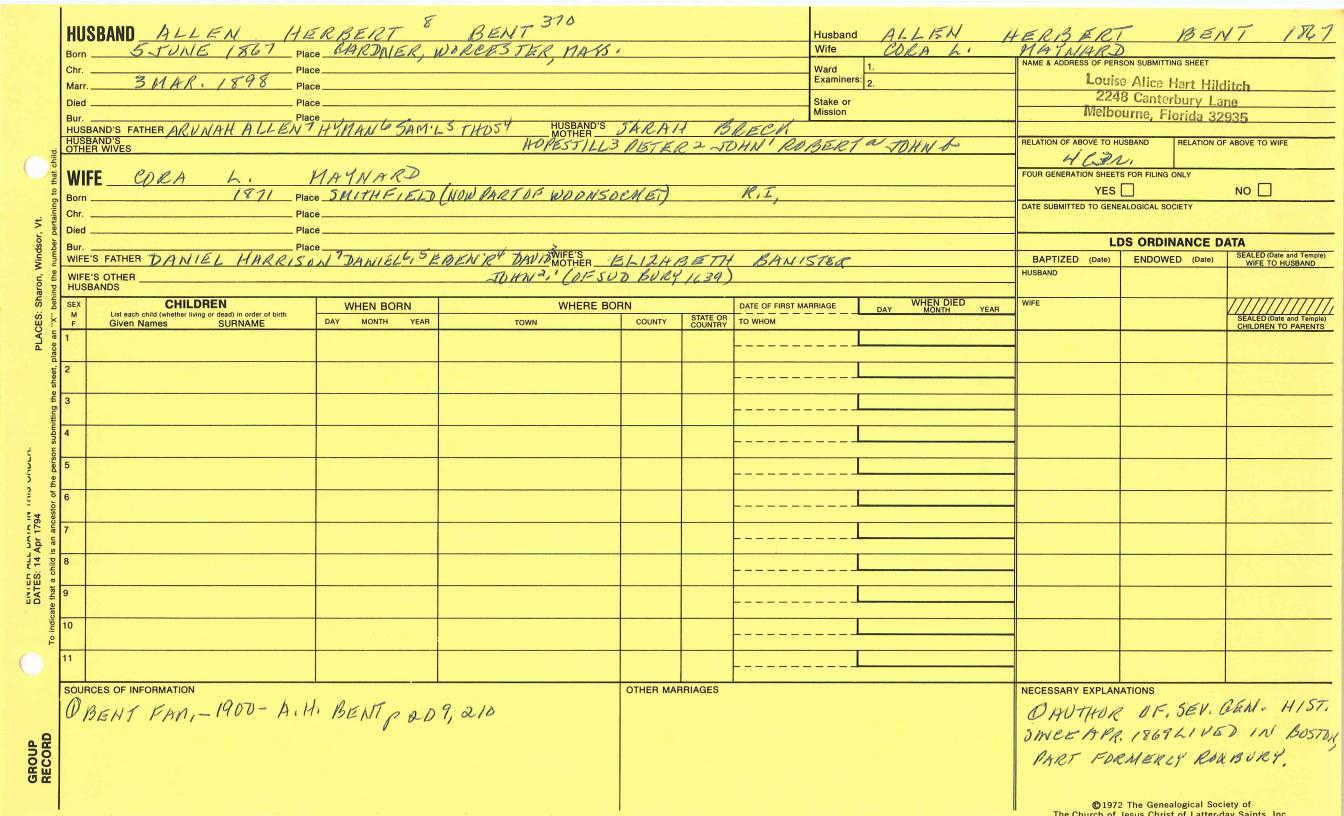 HUSBAND ALLEN HERBERT 8 BENT 370
Born 5 JUNE 1867 Place GARDNER, WORCESTER, MASS.
Chr. Place
Marr. 3 MAR. 1898 Place
Died Place
Bur. Place
HUSBAND'S FATHER ARUNAH ALLEN 7 HYMAN 6 SAM'L 5 THOS 4 HUSBAND'S MOTHER SARAH BRECK
HUSBAND'S OTHER WIVES HOPESTILL 3 PETER 2 JOHN 1 ROBERT a JOHN b
WIFE CORA L. MAYNARD
Born 1871 Place SMITHFIELD (NOW PART OF WOONSOCKET) R.I,
Chr. Place
Died Place
Bur. Place
WIFE'S FATHER DANIEL HARRISON 7 DANIEL 6, 5 EBEN'R 4 DAVID 3 WIFE'S MOTHER ELIZABETH BANISTER
WIFE'S OTHER HUSBANDS JOHN 2, 1 (OF SUDBURY 1639)
Husband ALLEN HERBERT BENT 1867
Wife CORA L. MAYNARD
Ward Examiners: 1.
2.
Stake or Mission
NAME & ADDRESS OF PERSON SUBMITTING SHEET
Louise Alice Hart Hilditch
2248 Canterbury Lane
Melbourne, Florida 32935
RELATION OF ABOVE TO HUSBAND RELATION OF ABOVE TO WIFE
FOUR GENERATION SHEETS FOR FILING ONLY
YES NO
DATE SUBMITTED TO GENEALOGICAL SOCIETY
LDS ORDINANCE DATA
BAPTIZED (Date) ENDOWED (Date) SEALED (Date and Temple) WIFE TO HUSBAND
HUSBAND
WIFE
SEALED (Date and Temple) CHILDREN TO PARENTS
SEX M F
CHILDREN
List each child (whether living or dead) in order of birth
Given Names SURNAME
WHEN BORN
DAY MONTH YEAR
WHERE BORN
TOWN COUNTY STATE OR COUNTRY
DATE OF FIRST MARRIAGE
TO WHOM
WHEN DIED
DAY MONTH YEAR
1
2
3
4
5
6
7
8
9
10
11
SOURCES OF INFORMATION
① BENT FAM,-1900- A.H. BENT p 209, 210
OTHER MARRIAGES
NECESSARY EXPLANATIONS
① AUTHOR OF. SEV. GEN. HIST.
SINCE APR. 1869 LIVED IN BOSTON,
PART FORMERLY ROXBURY.
©1972 The Genealogical Society of
The Church of Jesus Christ of Latter-day Saints, Inc.
ENTER ALL DATA IN THIS ORDER:
DATES: 14 Apr 1794
PLACES: Sharon, Windsor, Vt.
To indicate that a child is an ancestor of the person submitting the sheet, place an "X" behind the number pertaining to that child.
GROUP
RECORD